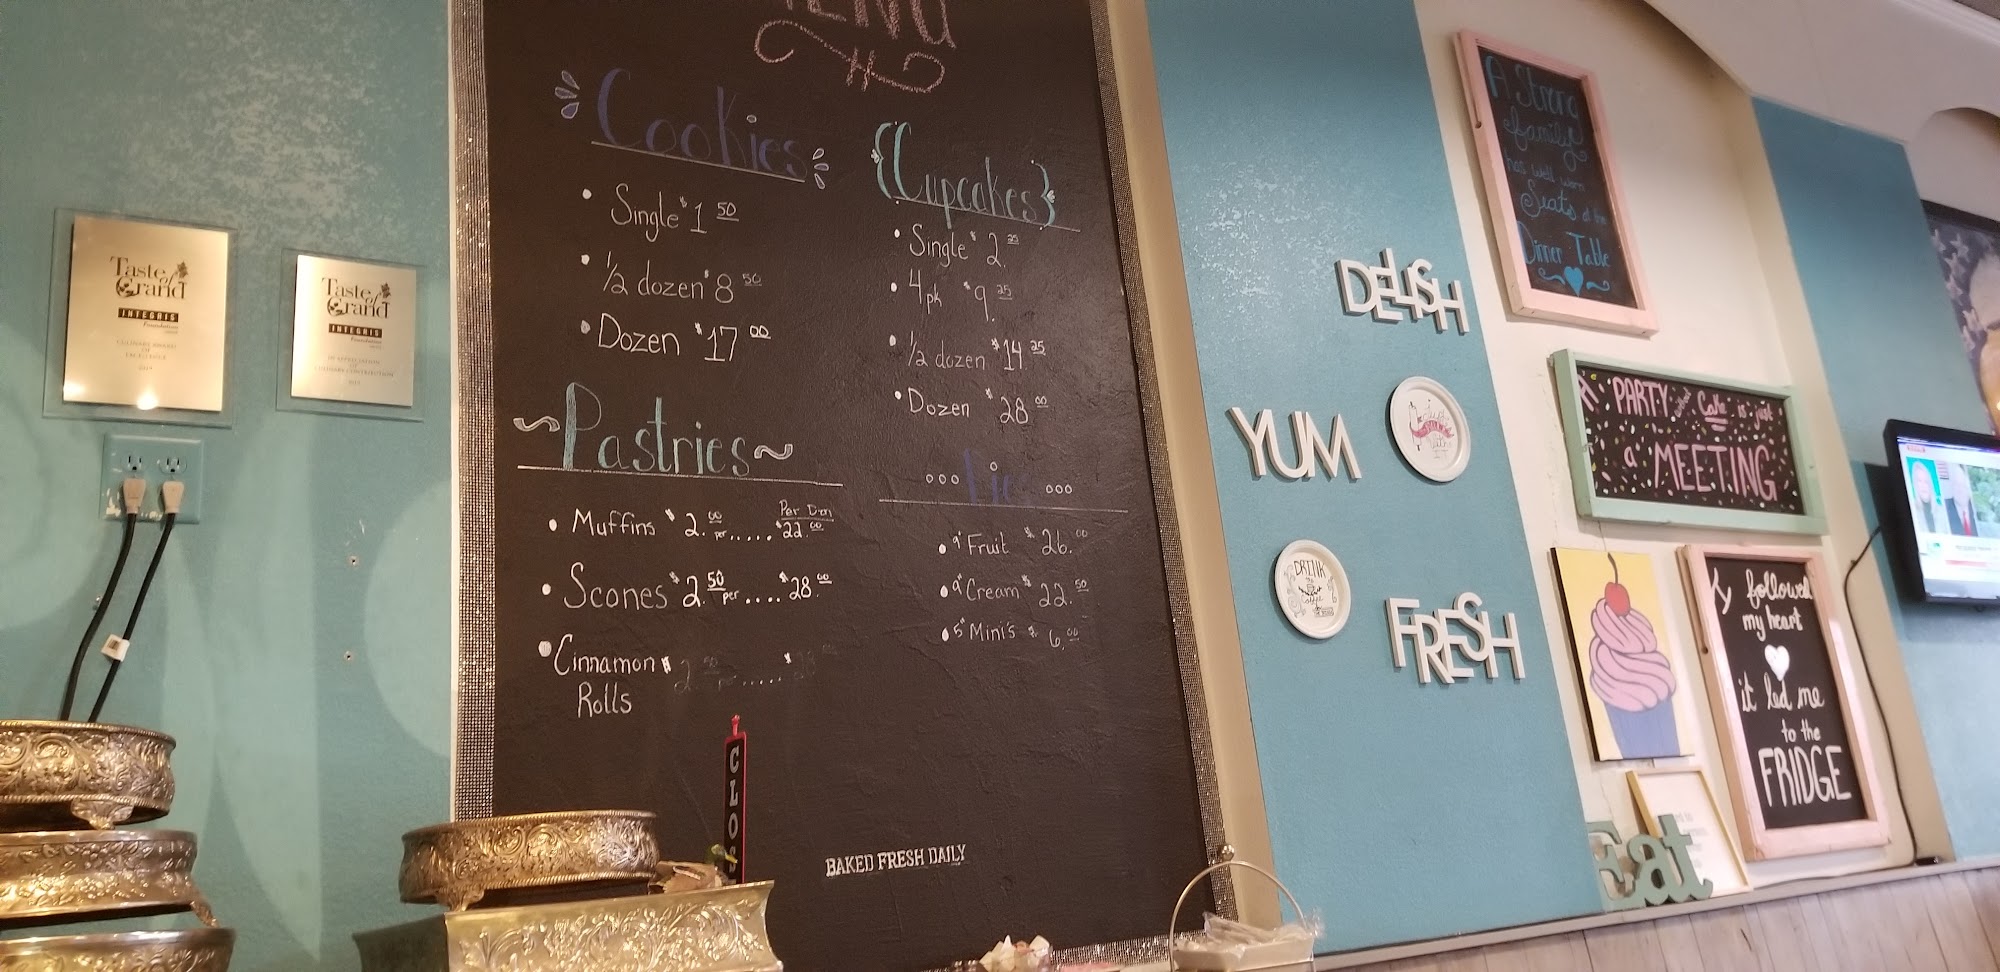 Taste
of
Grand
INTEGRIS
Foundation
CULINARY AWARD
OF
EXCELLENCE
Taste
of
Grand
INTEGRIS
Foundation
IN APPRECIATION
OF
CULINARY CONTRIBUTION
Cookies
Single $1 50
1/2 dozen $8 50
Dozen $17 00
{Cupcakes}
Single $2. 25
4pk $9. 25
1/2 dozen $14 25
Dozen $28 00
~Pastries~
Per Dzn
Muffins $2. 00 per..... $22. 00
Scones $2. 50 per.... $28. 00
Cinnamon $2. 50 per..... $28 00
Rolls
Pies
9" Fruit $26. 00
9" Cream $22. 50
5" Mini's $6. 00
BAKED FRESH DAILY
DELISH
YUM
FRESH
DRINK
Coffee
A Strong
family
has well worn
Seats at the
Dinner Table
A PARTY without Cake is just
a MEETING
I followed
my heart
it led me
to the
FRIDGE
Eat